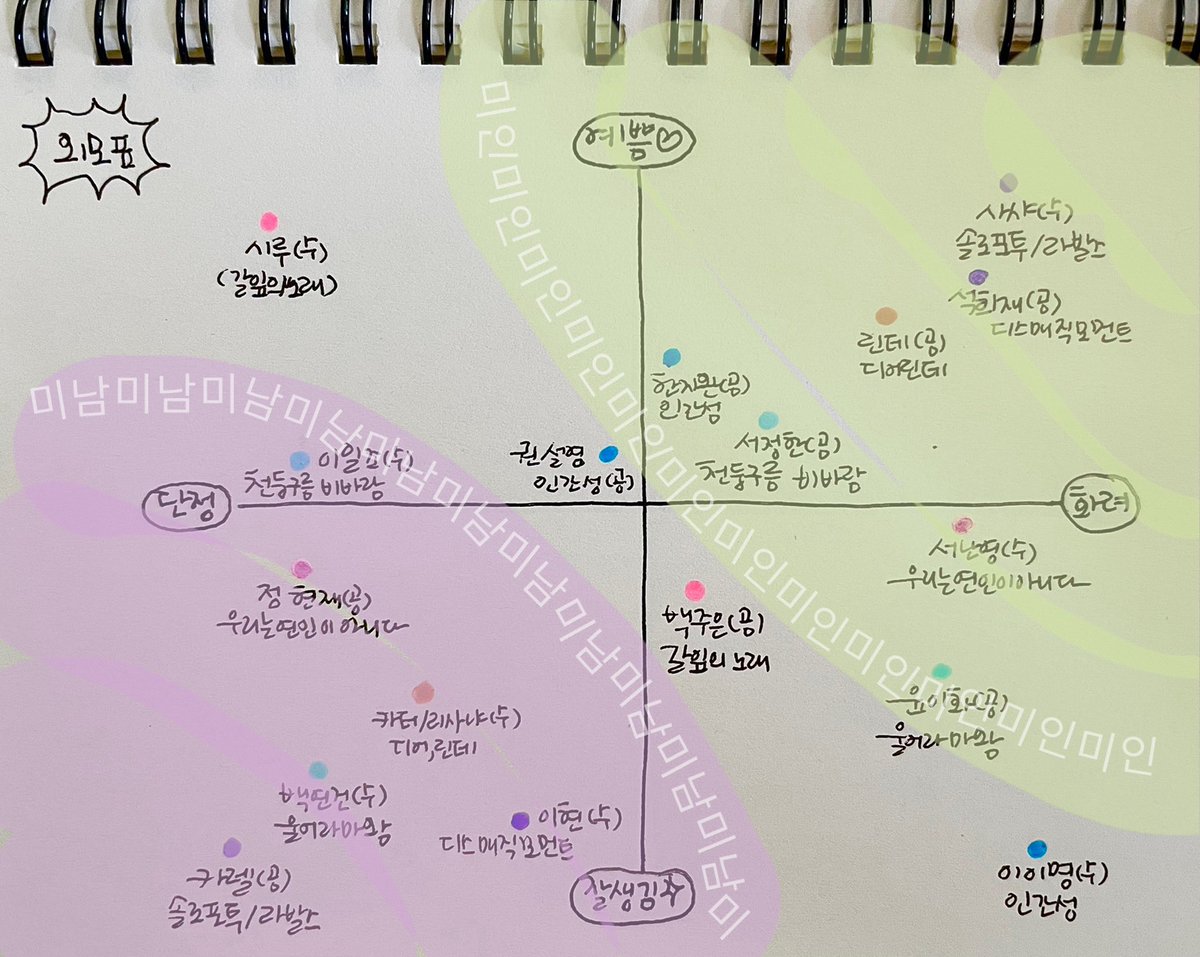 외모표
예쁨♡
시루(수)
(갈잎의노래)
사샤(수)
솔로포투/라발스
석화재(공)
디스매직모먼트
린테(공)
디어린테
한지완(공)
인간성
서정한(공)
천둥구름 비바람
권설영
인간성(공)
이일조(수)
천둥구름 비바람
단정
화려
서난영(수)
우리는연인이아니다
정현재(공)
우리는연인이아니다
백주은(공)
갈잎의 노래
윤이화(공)
울어라마왕
카테/리사냐(수)
디어,린테
백연건(수)
울어라마왕
이현(수)
디스매직모먼트
카렐(공)
솔로포투/라발스
이이명(수)
인간성
잘생김
미인미인미인미인미인미인미인미인미인미인미인미인미인미인
미남미남미남미남미남미남미남미남미남미남미남미남미